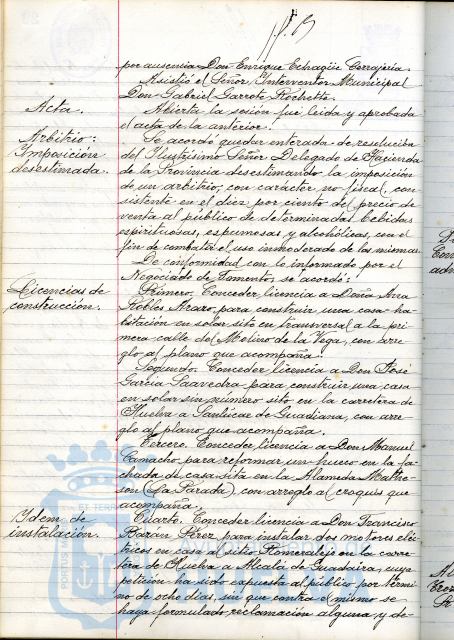 por ausencia Don Enrique Echagüe Cerrajería.
Asistió el Señor Interventor Municipal
Don Gabriel Garrote Rochette.
Acta.
Abierta la sesión fue leida y aprobada
el acta de la anterior.
Arbitrio:
Imposición
desestimada.
Se acordó quedar enterada de resolución
del Ilustrísimo Señor Delegado de Hacienda
de la Provincia desestimando la imposición
de un arbitrio, con carácter no fiscal, con
sistente en el diez por ciento del precio de
venta al público de determinadas bebidas
espirituosas, espumosas y alcohólicas, con el
fin de combatir el uso inmoderado de las mismas.
De conformidad con lo informado por el
Negociado de Fomento, se acordó:
Licencias de
construcción.
Primero. Conceder licencia a Doña Ana
Robles Arazo, para construir una casa-ha-
bitación en solar sito en transversal a la pri-
mera calle del Molino de la Vega, con arre-
glo al plano que acompaña.
Segundo. Conceder licencia a Don José
García Saavedra para construir una casa
en solar sin número sito en la carretera de
Huelva a Sanlúcar de Guadiana, con arre-
glo al plano que acompaña.
Tercero. Conceder licencia a Don Manuel
Camacho para reformar un hueco en la fa-
chada de casa sita en la Alameda Mathe-
son (La Parada) con arreglo al croquis que
acompaña.
Ydem de
instalación.
Cuarto. Conceder licencia a Don Francisco
Bazán Pérez para instalar dos motores eléc-
tricos en casa al sitio Romeralejo en la carre
tera de Huelva a Alcalá de Guadaira, cuya
petición ha sido expuesta al público por térmi
no de ocho días, sin que contra el mismo se
haya formulado reclamación alguna y de-